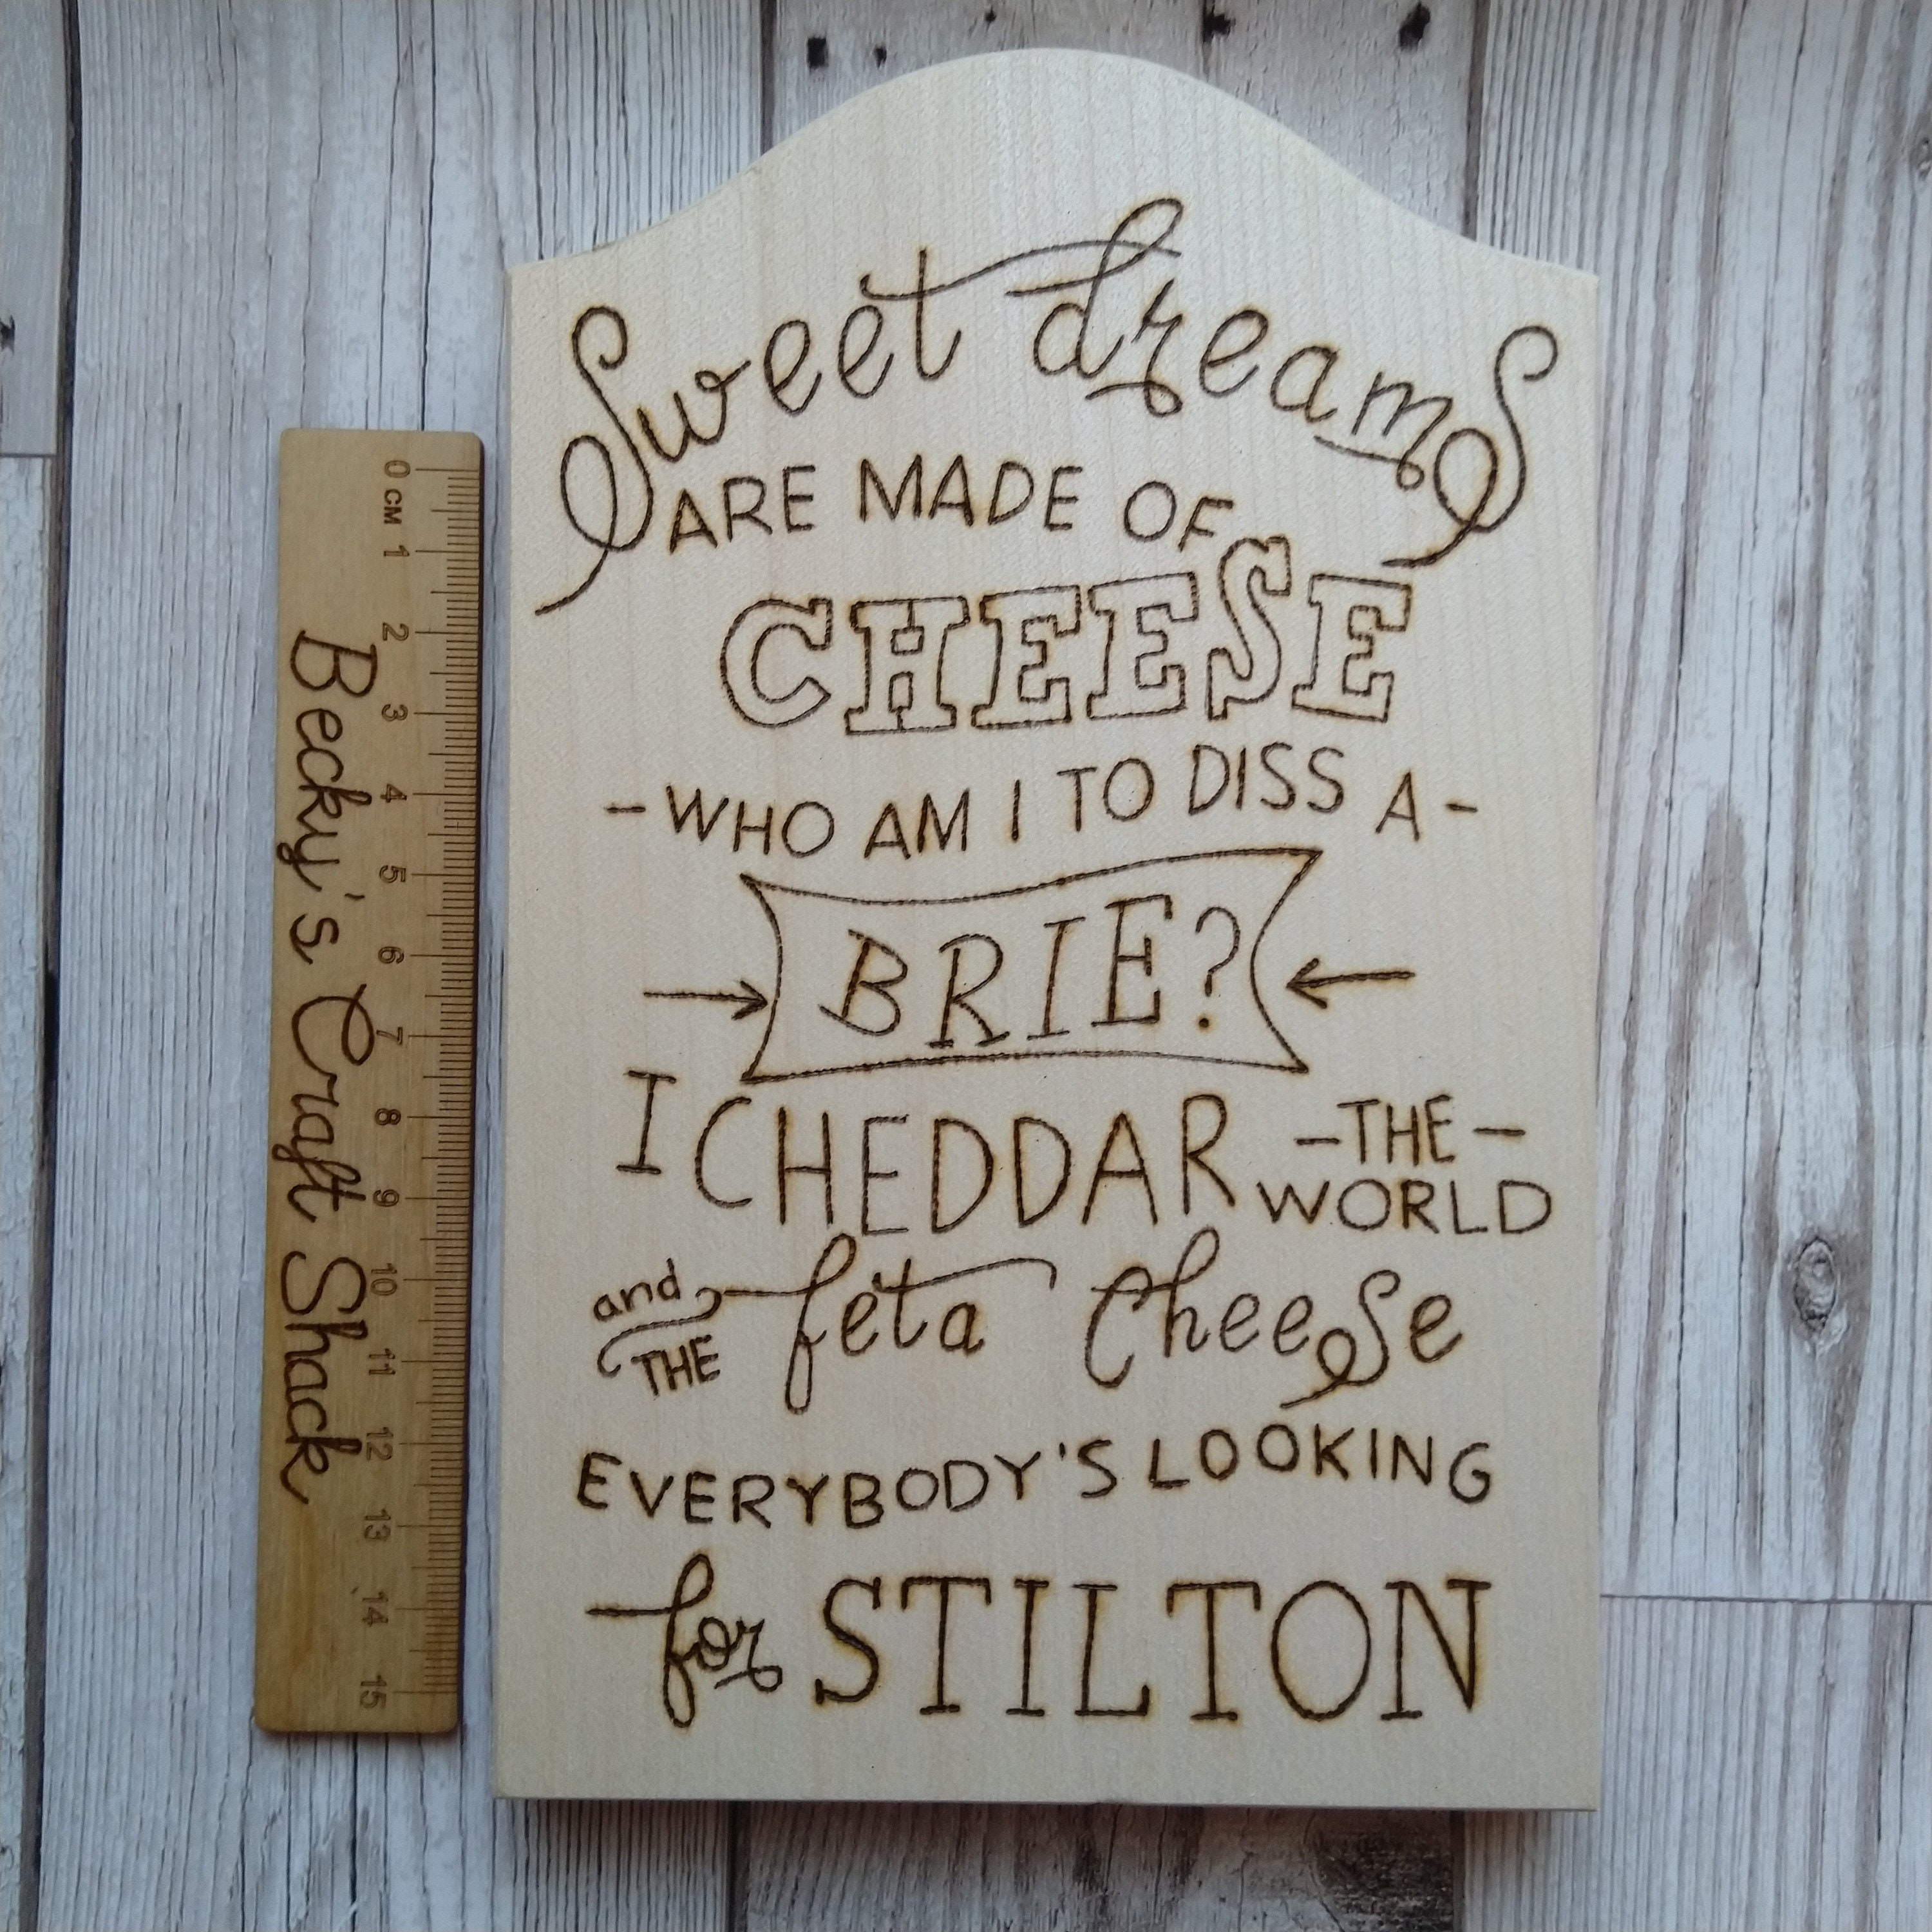 Sweet dreams
ARE MADE OF
CHEESE
-WHO AM I TO DISS A-
BRIE?
I CHEDDAR -THE-
WORLD
and
THE
feta Cheese
EVERYBODY'S LOOKING
for STILTON
0 CM 1 2 3 4 5 6 7 8 9 10 11 12 13 14 15
Becky's Craft Shack